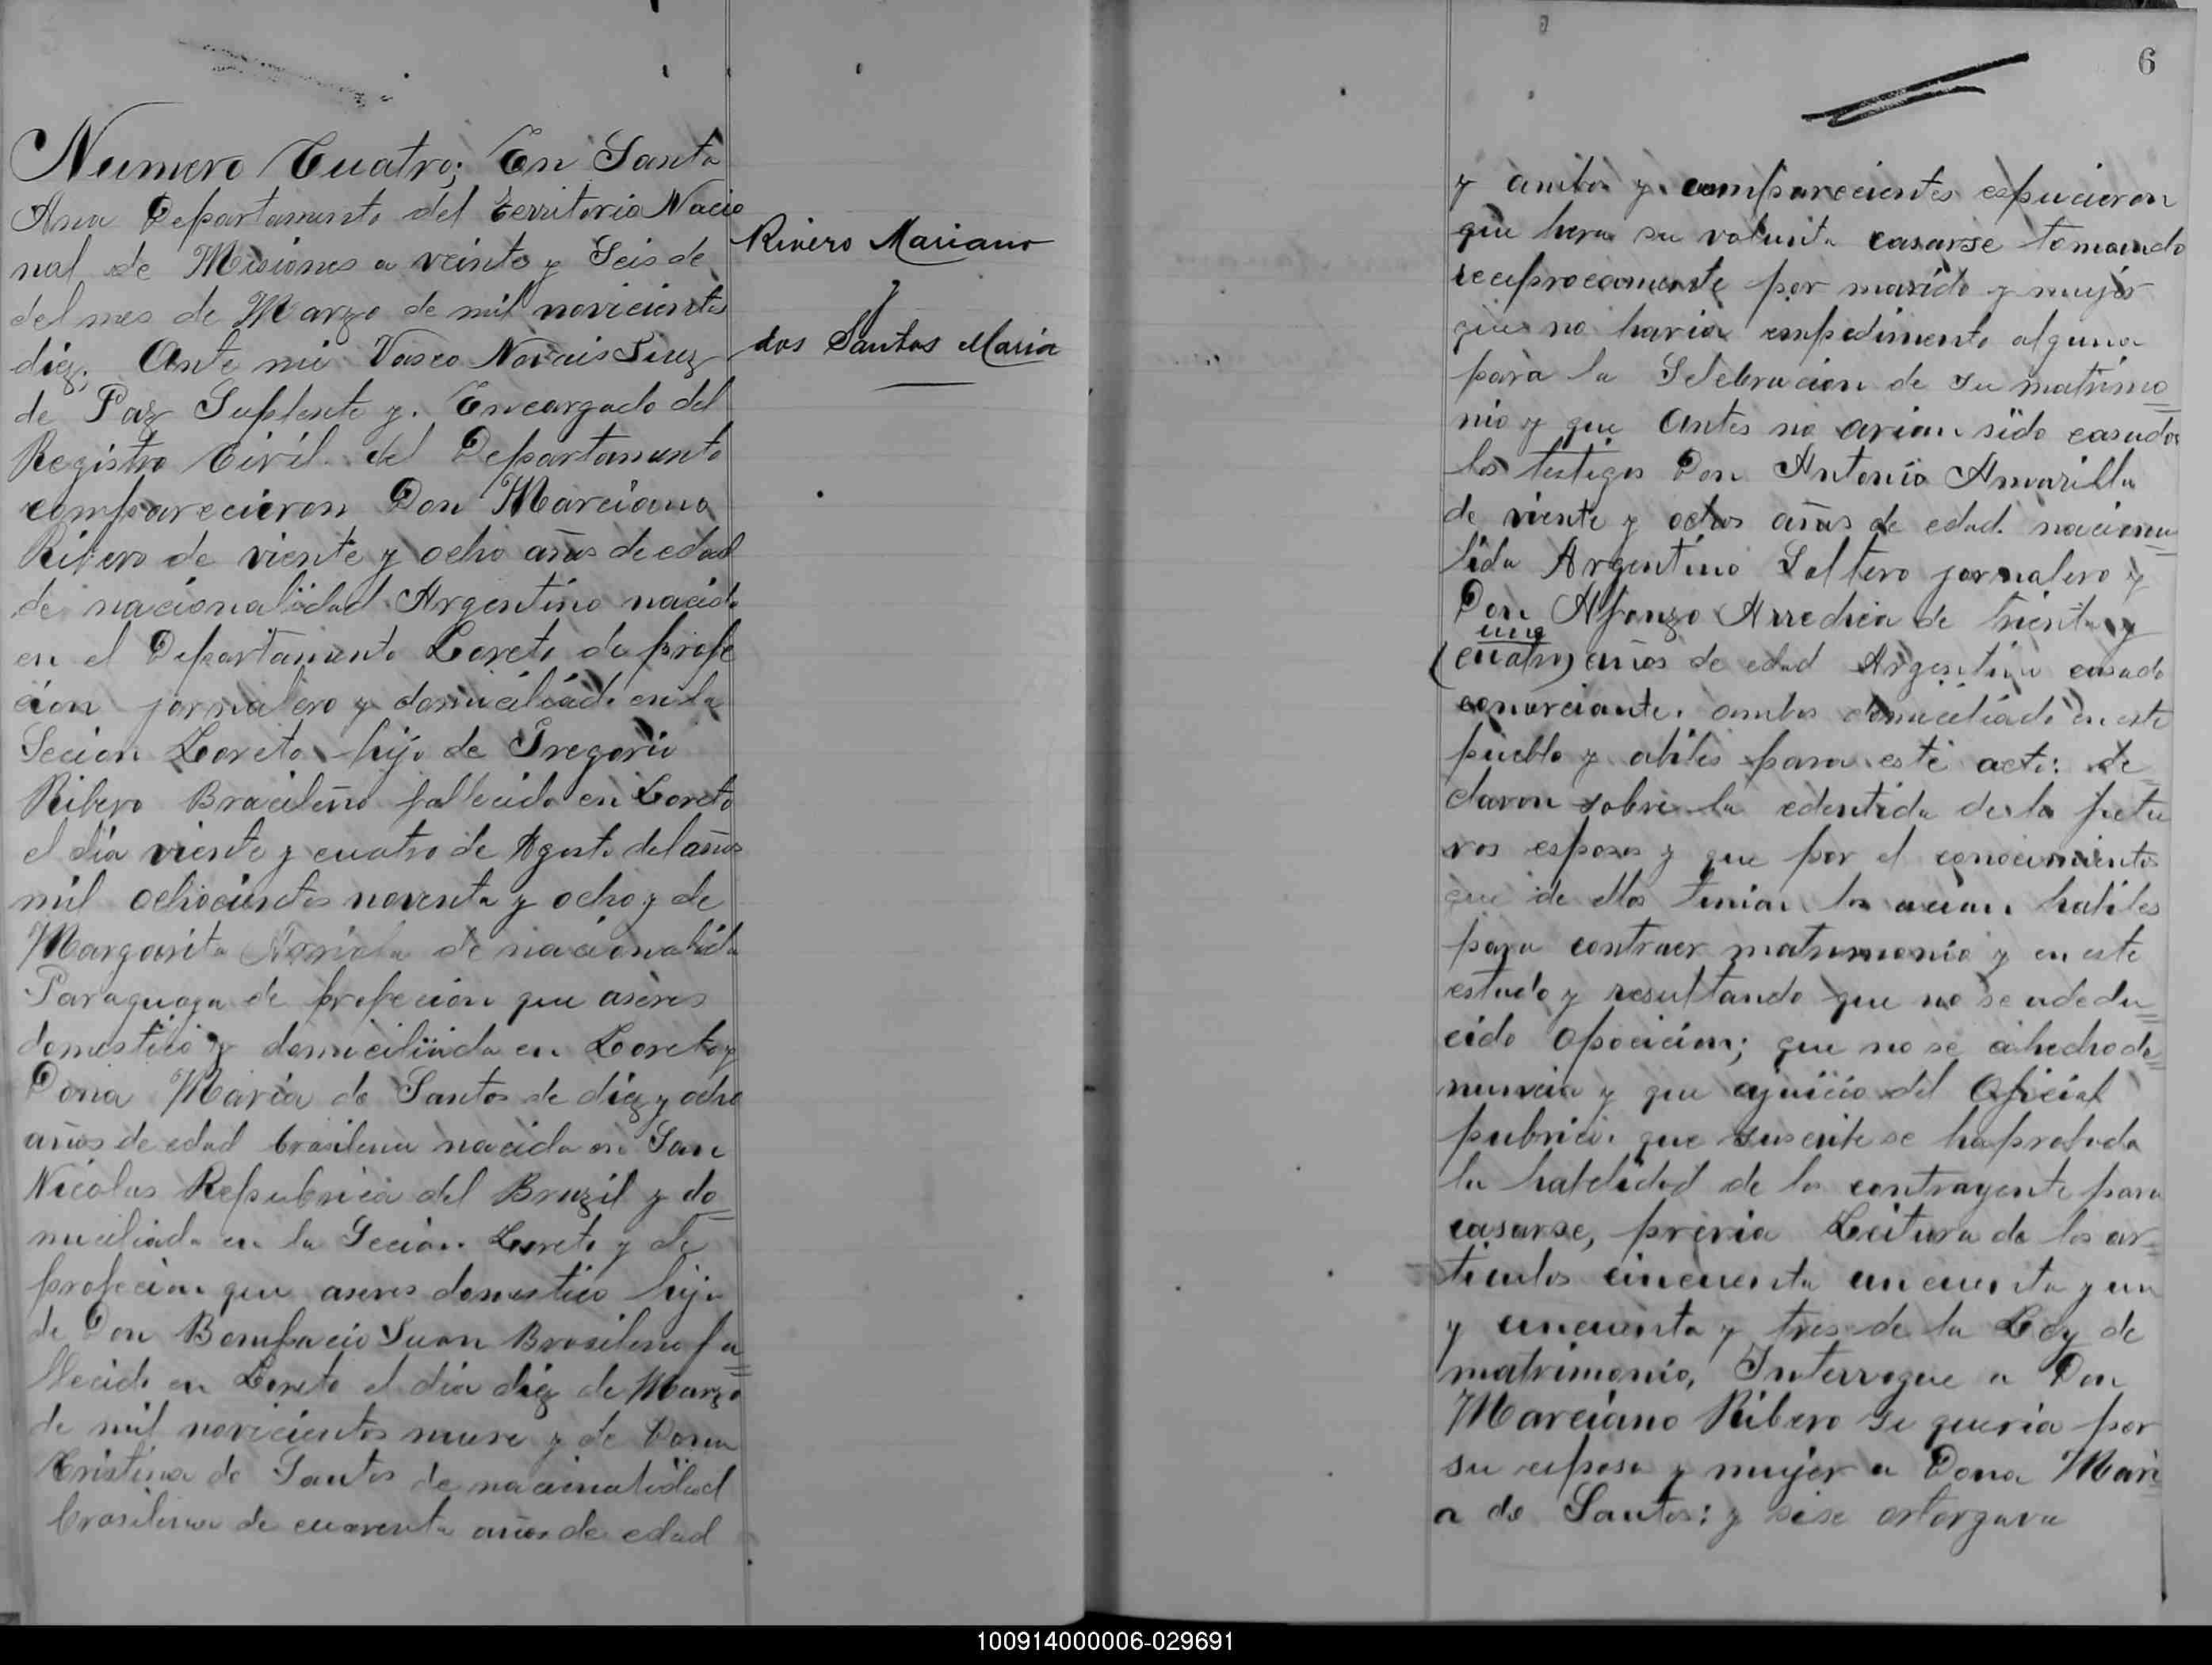 Numero Cuatro; En Santa
Ana Departamento del Territorio Nacio
nal de Misiones a veinte y Seis de
del mes de Marzo de mil novicientos
diez, Ante mi Vasco Novais Juez
de Paz Suplente y. Encargado del
Registro Civil del Departamento
comparecieron Don Marciano
Ribero de viente y ocho años de edad
de nacionalidad Argentino nacido
en el Departamento Loreto de profe
cion jornalero y domiciliado en la
Secion Loreto hijo de Gregorio
Ribero Bracileño fallecido en Loreto
el dia viente y cuatro de Agosto del años
mil ochocientos noventa y ocho y de
Margarita de nacionalida
Paraguaya de profecion que aseres
domestico y domiciliada en Loreto y
Dona Maria do Santos de diez y ocho
años de edad brasilena nacida en San
Nicolas Repubrica del Brazil y do
miciliada en la Secion Loreto y de
profecion que aseres domestico hija
de Don Bonifacio Juan Brasileno fa
llecido en Loreto el dia diez de Marzo
de mil novicientos nueve y de Dona
Cristina do Santos de nacionalidad
brasilena de cuarenta años de edad
Rivero Mariano
y
dos Santos Maria
6
y ambos y comparecientes espucieron
que hera su volunta casarse tomando
reciprocamente por marido y mujer
que no havia empedimento alguno
para la Selebracion de su matrimo
nio y que Antes no avian sido casados
los testigos Don Antonio Amarilla
de viente y ochos años de edad. naciona
lida Argentino Soltero jornalero y
Don Alfonzo Arrechea de trienta y
una
(cuatro) años de edad Argentino casado
comerciante. ambos domiciliado en este
pueblo y abiles para este acto: de
claron sobre la edentida de lo futu
ros esposos y que por el conocimiento
que de ellos tenian los habiles
para contraer matrimonio y en este
estado y resultando que no se adedu
cido oposicion; que no se a hecho de
nuncia y que ajuicio del Oficial
pubrico que suscribe se ha probado
la habelidad de los contrayente para
casarse, previa Leitura de los ar
ticulos cincuenta cincuenta y un
y cincuenta y tres de la Ley de
matrimonio, Interrogue a Don
Marciano Ribero se queria por
su esposa y mujer a Dona Mari
a do Santos: y si se ortorgava
100914000006-029691